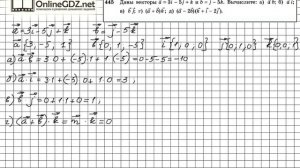 OnlineGDZ.net
445 Даны векторы a⃗ = 3i − 5j + k и b⃗ = j − 5k. Вычислите: а) a⃗ b⃗; б) a⃗ i⃗;
в) b⃗ j⃗; г) (a⃗ + b⃗) k⃗; д) (a⃗ − 2b⃗)(k⃗ + i⃗ − 2j⃗).
a⃗ = 3i⃗ − 5j⃗ + k⃗   b⃗ = j⃗ − 5k⃗
a⃗ {3, −5, 1}   b⃗ {0, 1, −5}   i⃗ {1, 0, 0}   j⃗ {0, 1, 0}   k⃗ {0, 0, 1}
а) a⃗ b⃗ = 3·0 + (−5)·1 + 1·(−5) = 0 − 5 − 5 = −10
б) a⃗ i⃗ = 3·1 + (−5)·0 + 1·0 = 3 ,
в) b⃗ j⃗ = 0 + 1·1 + 0 = 1 ,
г) (a⃗ + b⃗)·k⃗ = m⃗ · k⃗ = 0